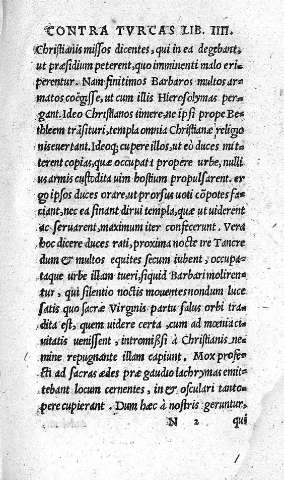 CONTRA TVRCAS LIB. IIII.
Christianis missos dicentes, qui in ea degebant,
ut præsidium peterent, quo imminenti malo eri-
perentur. Nam finitimos Barbaros multos ar-
matos coëgisse, ut cum illis Hierosolymas per-
gant. Ideo Christianos timere, ne ipsi prope Be-
thleem trãsituri, templa omnia Christianæ religio
nis euertant. Ideoq; cupere illos, ut eò duces mit-
terent copias, quæ occupata propere urbe, nulli-
us armis custodita uim hostium propulsarent. er
go ipsos duces orare, ut prorsus uoti cõpotes fa-
ciant, nec ea sinant dirui templa, quæ ut uiderent
ac seruarent, maximum iter confecerunt. Vera
hoc dicere duces rati, proxima nocte ire Tancre
dum & multos equites secum iubent, occupa-
taque urbe illam tueri, si quid Barbari moliren-
tur, qui silentio noctis mouentes nondum luce
satis quo sacræ Virginis partu salus orbi tra-
dita est, quem uidere certa, cum ad mœnia ci-
uitatis uenissent, intromissi à Christianis, ne-
mine repugnante illam capiunt. Mox profe-
cti ad sacras ædes præ gaudio lachrymas emit-
tebant locum cernentes, in & osculari tanto-
pere cupierant. Dum hæc à nostris geruntur,
N 2 qui